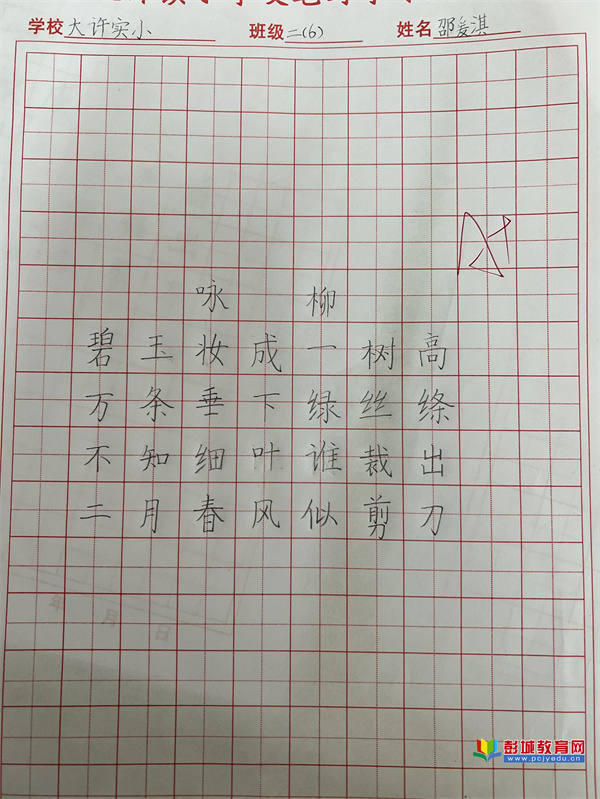 学校 大许实小 班级 二(6) 姓名 邵爱淇
A+
咏柳
碧玉妆成一树高
万条垂下绿丝绦
不知细叶谁裁出
二月春风似剪刀
年 月 日
彭城教育网
www.pcjyedu.cn